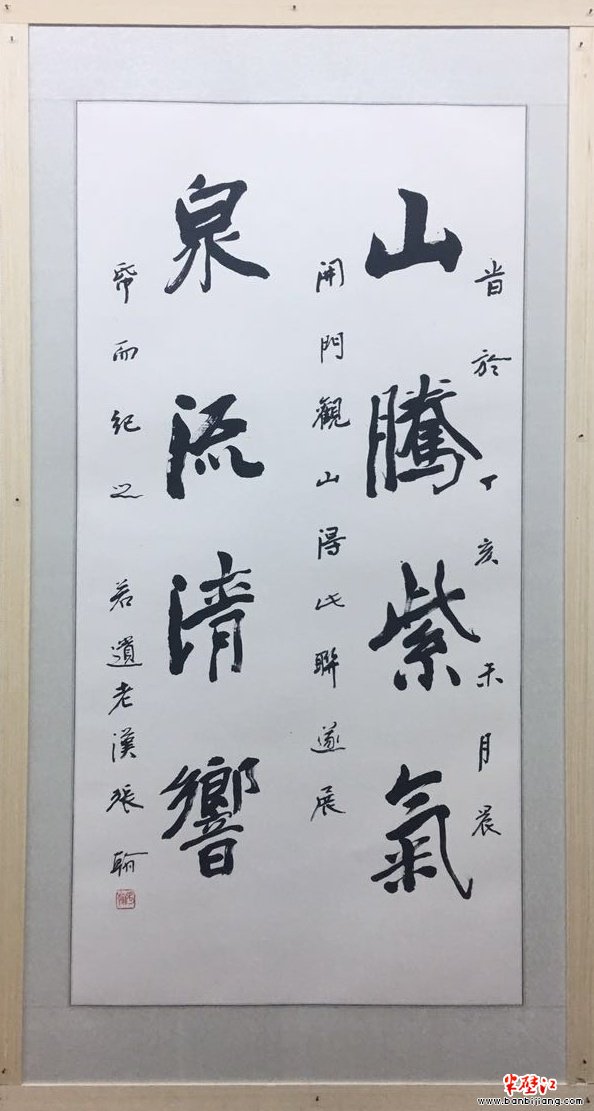 旹於丁亥未月晨
山騰紫氣
開門觀山得此聯遂展
泉流清響
帋而紀之 若遺老漢張翰
半壁江
www.banbijiang.com